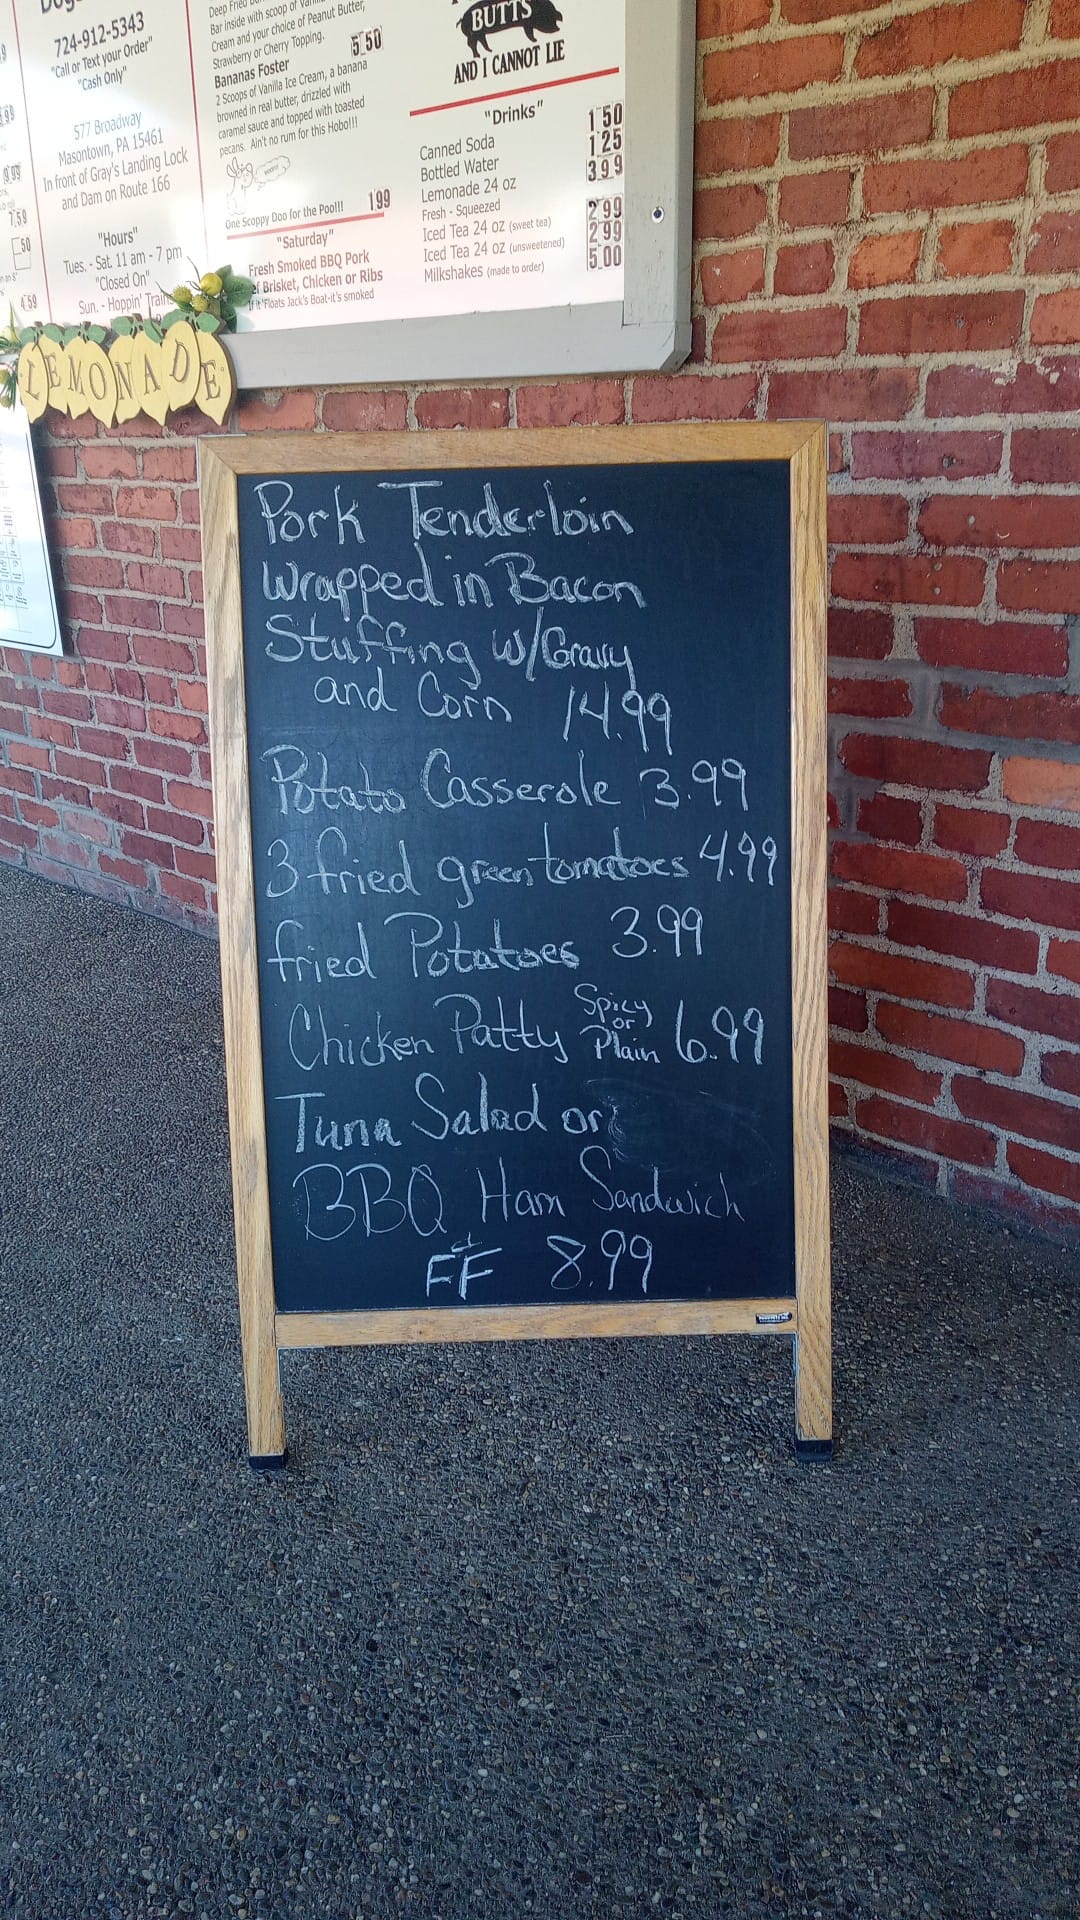 724-912-5343
"Call or Text your Order"
"Cash Only"
577 Broadway
Masontown, PA 15461
In front of Gray's Landing Lock
and Dam on Route 166
"Hours"
Tues. - Sat. 11 am - 7 pm
"Closed On"
Sun. - Hoppin'
Bar inside with scoop of
Cream and your choice of Peanut Butter,
Strawberry or Cherry Topping. 5.50
Bananas Foster
2 Scoops of Vanilla Ice Cream, a banana
browned in real butter, drizzled with
caramel sauce and topped with toasted
pecans. Ain't no rum for this Hobo!!!
One Scoppy Doo for the Poo!!! 1.99
"Saturday"
Fresh Smoked BBQ Pork
Brisket, Chicken or Ribs
Floats Jack's Boat-it's smoked
BUTTS
AND I CANNOT LIE
"Drinks"
Canned Soda 1.50
Bottled Water 1.25
Lemonade 24 oz 3.99
Fresh - Squeezed
Iced Tea 24 oz (sweet tea) 2.99
Iced Tea 24 oz (unsweetened) 2.99
Milkshakes (made to order) 5.00
LEMONADE
Pork Tenderloin
wrapped in Bacon
Stuffing w/Gravy
and Corn 14.99
Potato Casserole 3.99
3 fried green tomatoes 4.99
fried Potatoes 3.99
Chicken Patty Spicy or Plain 6.99
Tuna Salad or
BBQ Ham Sandwich
FF 8.99